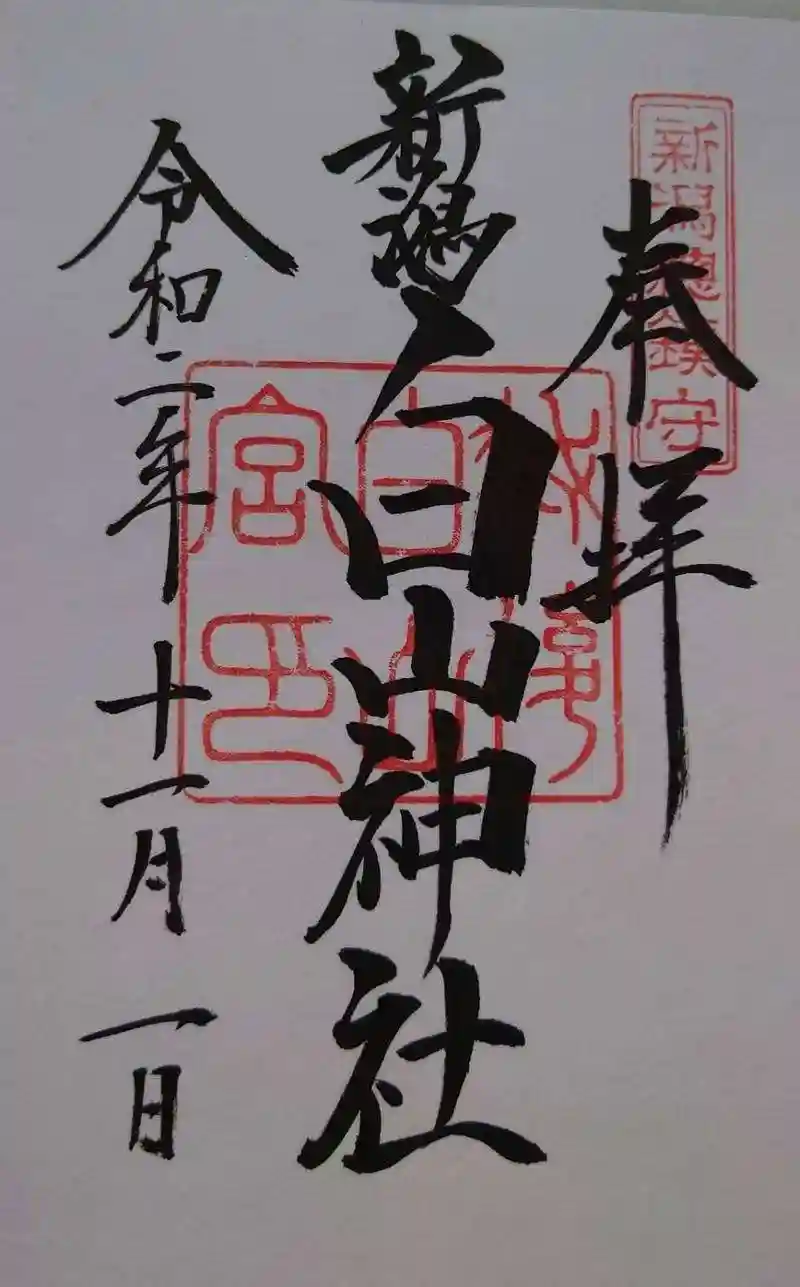 新潟總鎮守
奉拝
新潟白山神社
白山
宮印
令和二年十一月一日